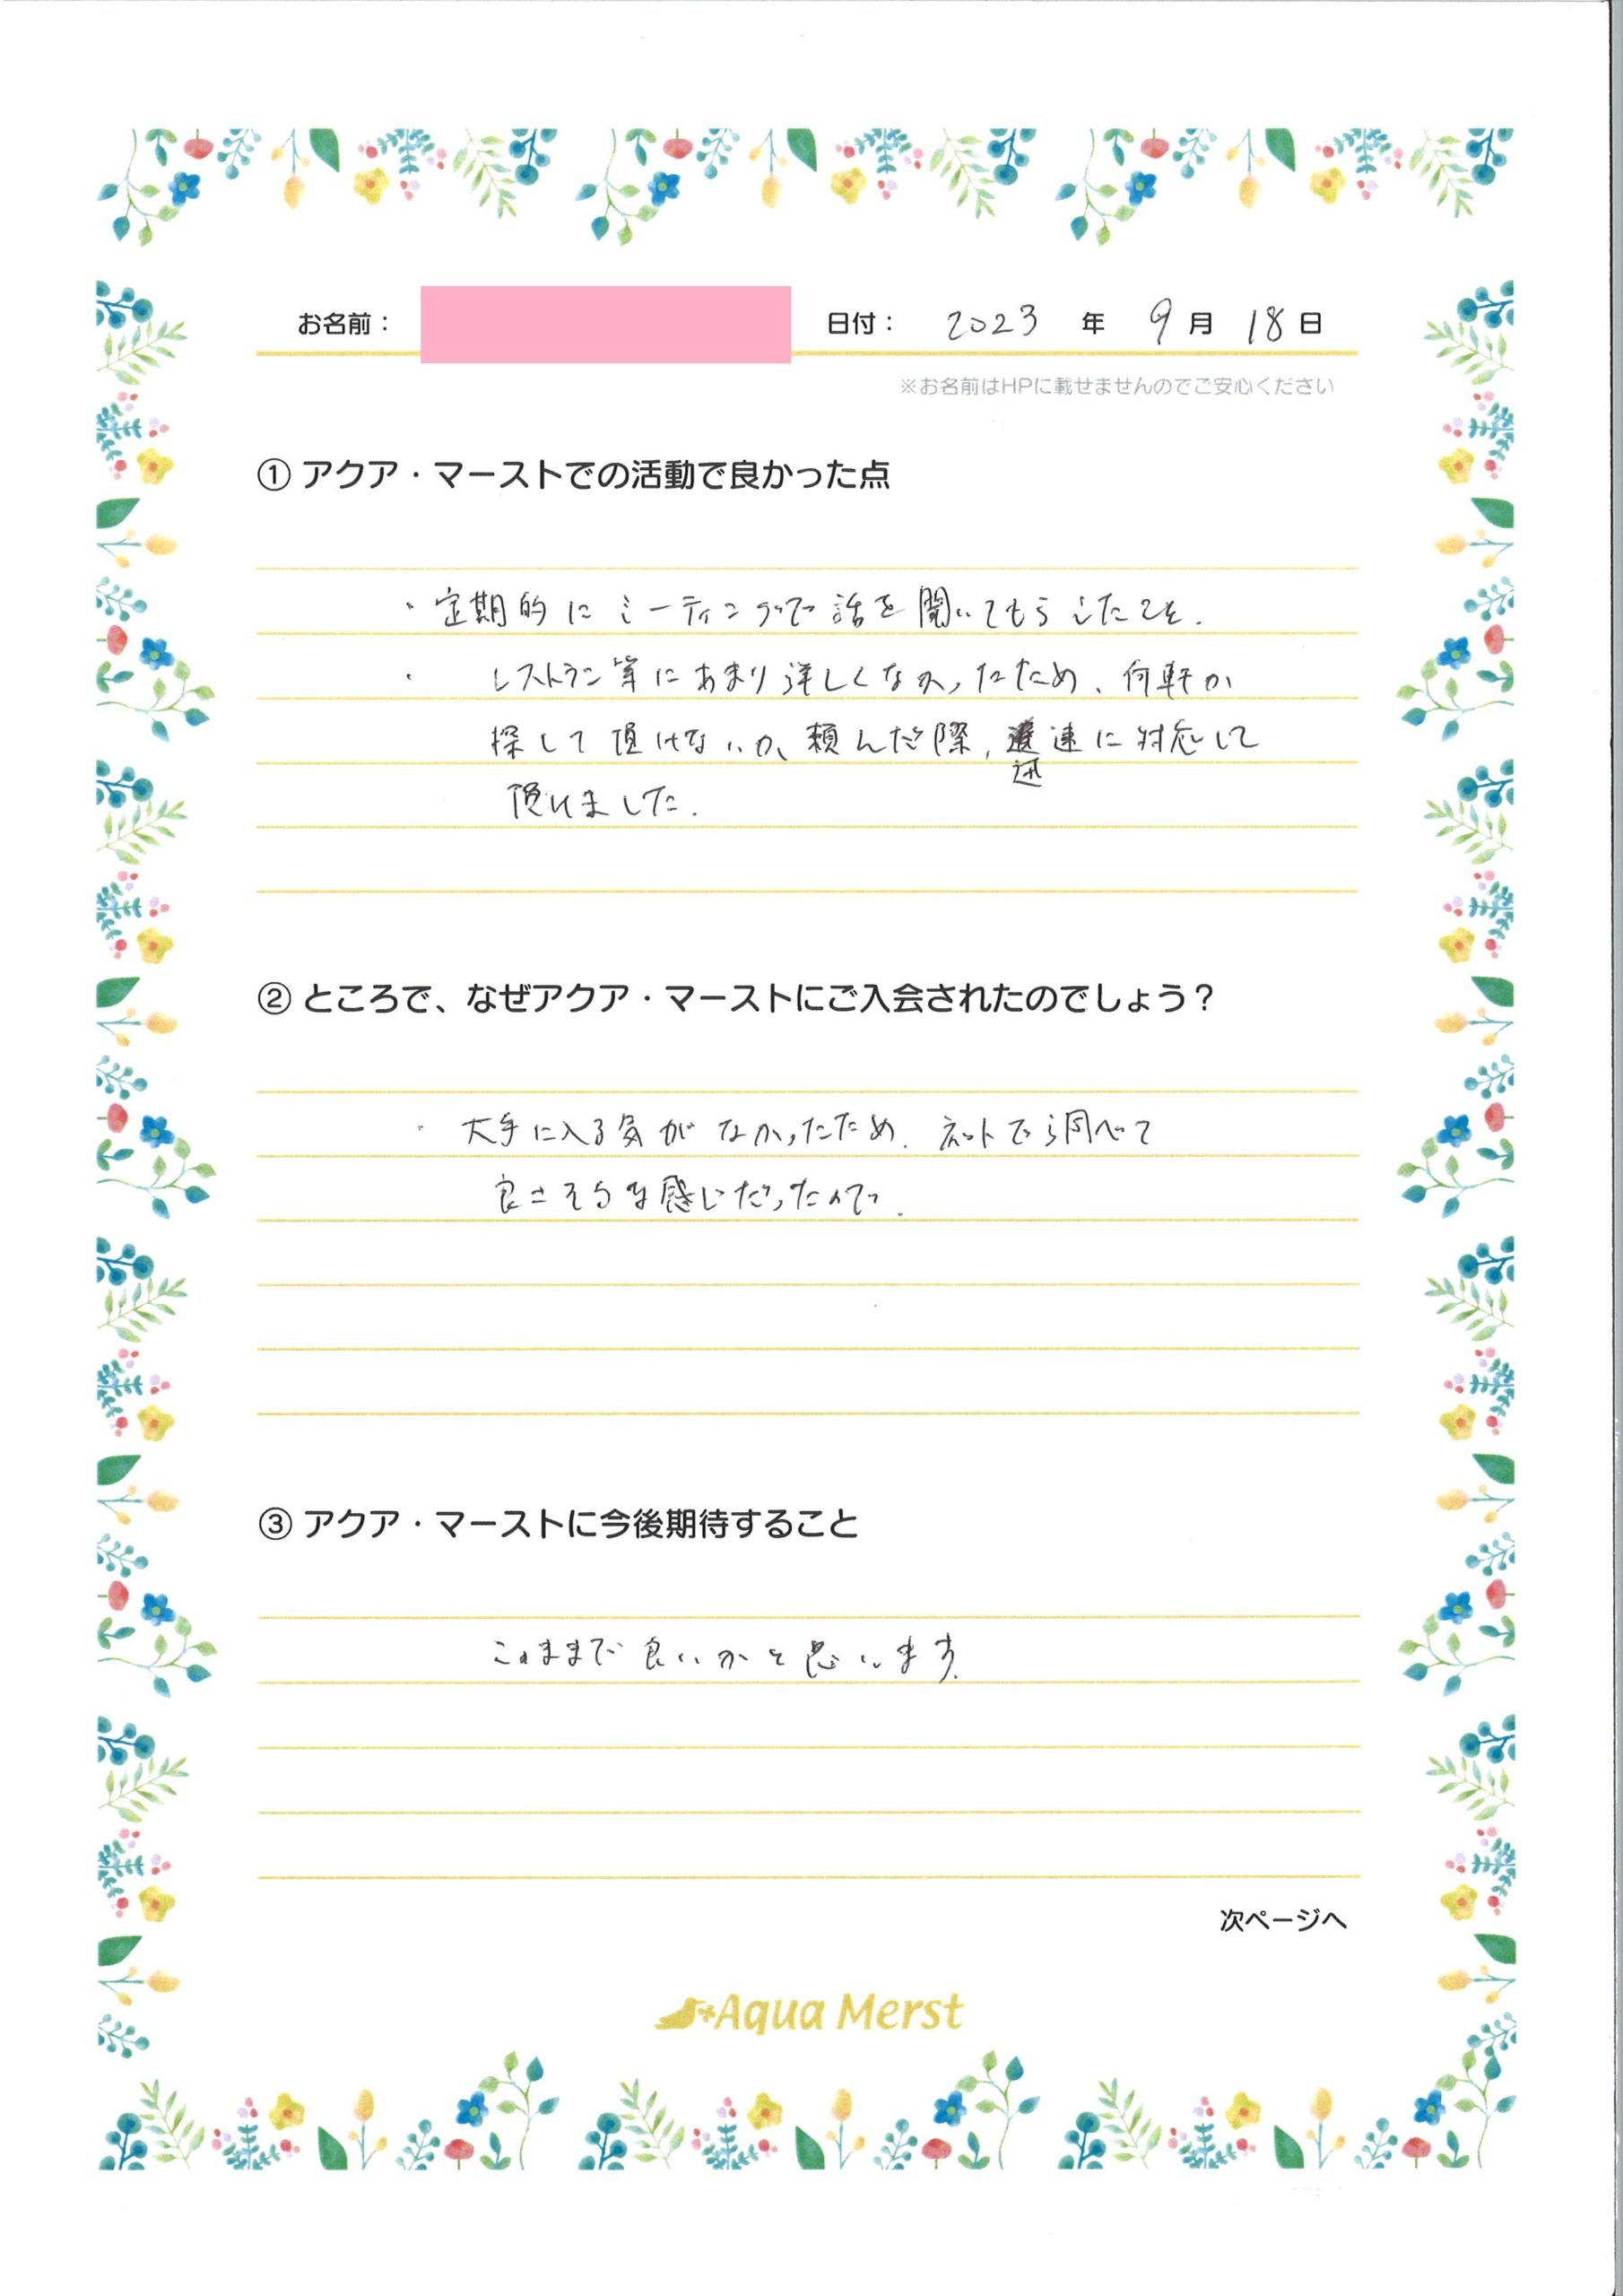 お名前： 日付： 2023 年 9 月 18 日
※お名前はHPに載せませんのでご安心ください
① アクア・マーストでの活動で良かった点
・定期的にミーティングで話を聞いてもらえたこと.
・ レストラン等にあまり詳しくなかったため、何軒か
探して頂けないか、頼んだ際, 迅速に対応して
頂けました.
② ところで、なぜアクア・マーストにご入会されたのでしょう？
・ 大手に入る気がなかったため. ネットで調べて
良さそうな感じだったので.
③ アクア・マーストに今後期待すること
このままで良いかと思います.
次ページへ
Aqua Merst